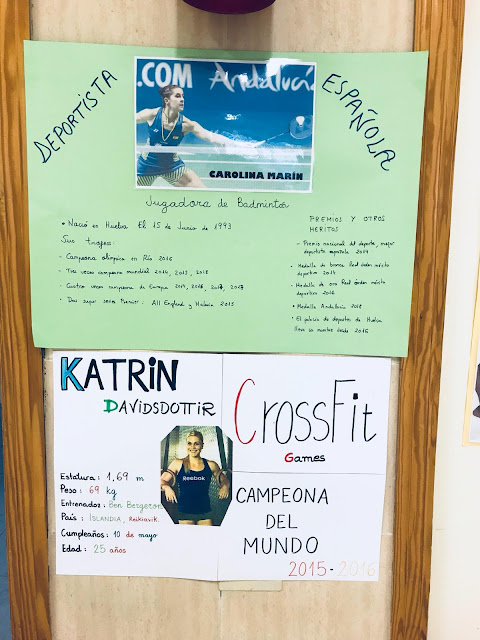 DEPORTISTA
ESPAÑOLA
.COM Andalucía
CAROLINA MARÍN
Jugadora de Badminton
• Nació en Huelva El 15 de Junio de 1993
Sus trofeos:
- Campeona olímpica en Río 2016
- Tres veces campeona mundial 2014, 2015, 2018
- Cuatro veces campeona de Europa 2014, 2016, 2017, 2018
- Dos super series Premier: All England y Malasia 2015
PREMIOS Y OTROS
MERITOS
- Premio nacional del deporte, mejor
deportista española 2014
- Medalla de bronce Real órden mérito
deportivo 2014
- Medalla de oro Real órden mérito
deportivo 2016
- Medalla Andalucía
- El palacio de deportes de Huelva
lleva su nombre desde 2016
KATRIN
DAVIDSDOTTIR
Reebok
Estatura: 1,69 m
Peso: 69 kg
Entrenador: Ben Bergeron
País: ISLANDIA, Reikiavik.
Cumpleaños: 10 de mayo
Edad: 25 años
CrossFit
Games
CAMPEONA
DEL
MUNDO
2015-2016